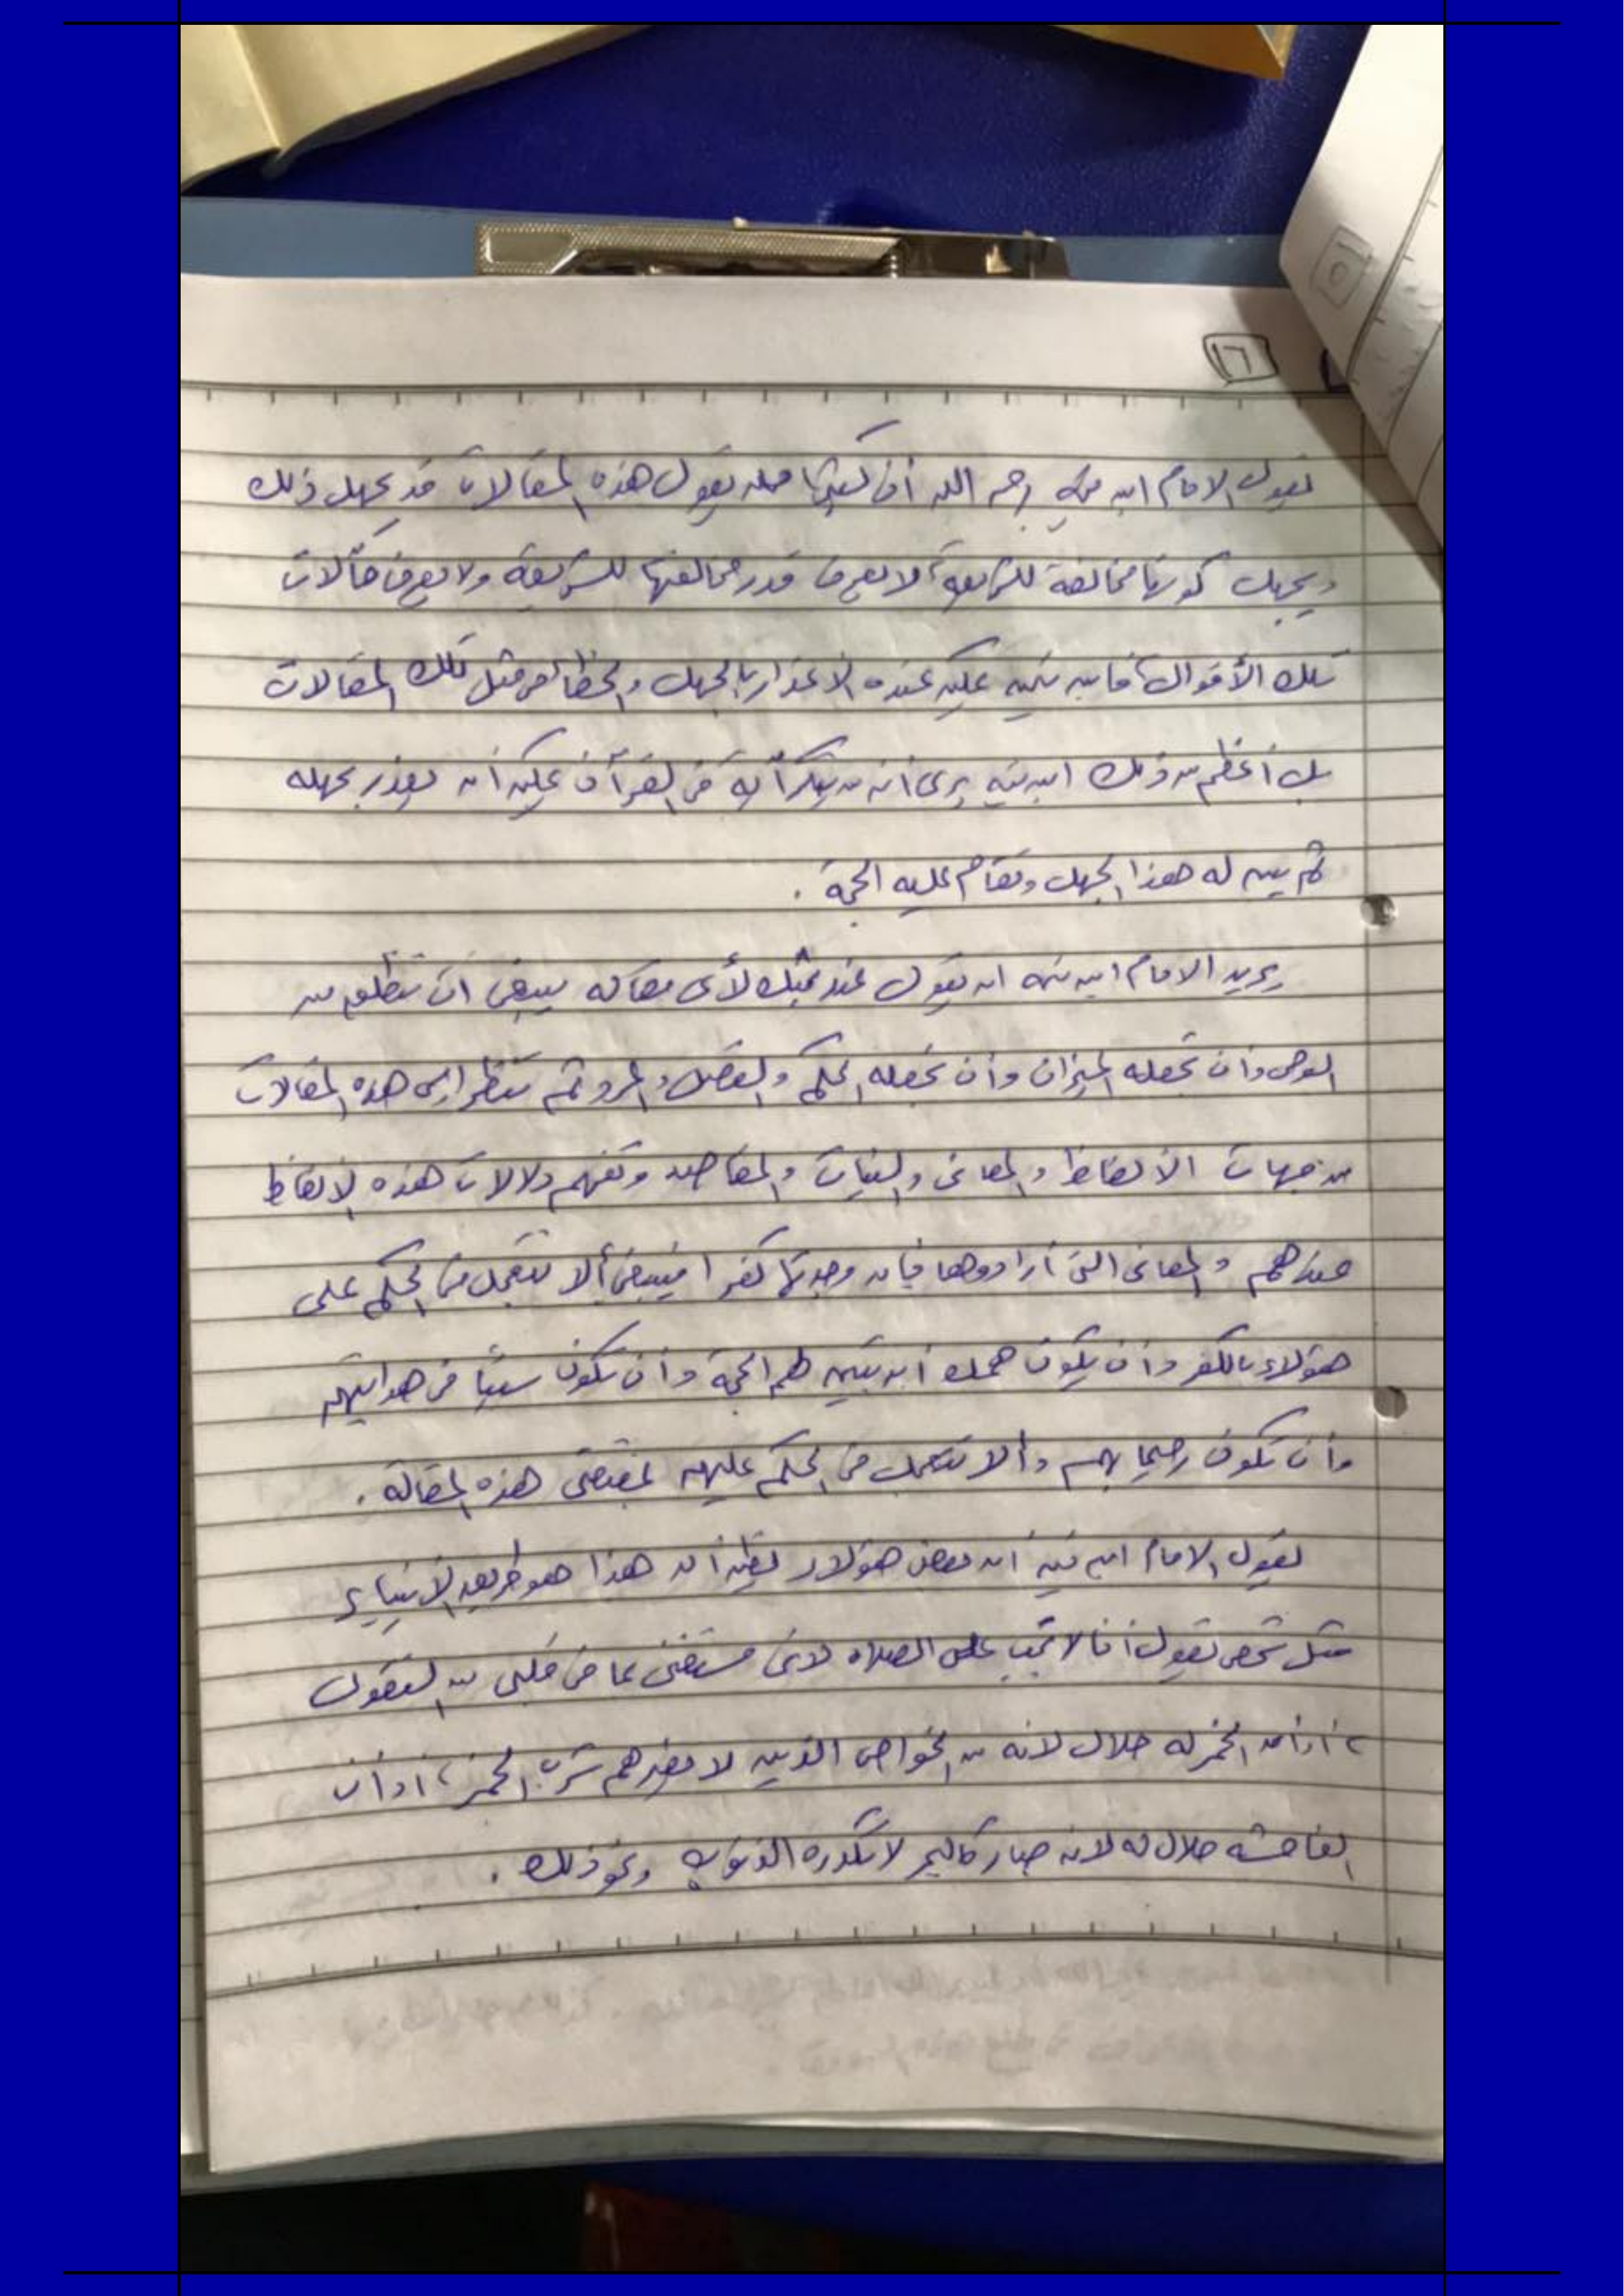 ١٦
يقول الامام ابن تيمية رحمه الله أن كثيرا ممن يقول هذه المقالات قد يجهل ذلك
ويجهل كونها مخالفة للشريعة، لا يعرف قدر مخالفتها للشريعة ولا يعرف مآلات
تلك الأقوال، فابن تيمية يمكن عنده الاعذار بالجهل والخطأ في مثل تلك المقالات
بل أعظم من ذلك ابن تيمية يرى أن من ينكر آية في القرآن يمكن أن يعذر بجهله
ثم يبين له هذا الجهل وتقام عليه الحجة .
يريد الامام ابن تيمية ان يقول عند بحثك لأى مقاله ينبغى ان تنطلق من
الوحى وان تجعله الميزان وأن تجعله الحكم والفصل والمرد ثم تنظر إلى هذه المقالات
من جهات الألفاظ والمعانى والنيات والمقاصد وتفهم دلالات هذه الالفاظ
عندهم والمعانى التى أرادوها فإن وجدتها كفرا فينبغى ألا تتعجل فى الحكم على
هؤلاء بالكفر وأن يكون همك أن تبين لهم الحجة وأن تكون سببًا فى هدايتهم
وأن تكون رحيما بهم وألا تتعجل فى الحكم عليهم بمقتضى هذه المقالة .
يقول الامام ابن تيمية ان بعض هؤلاء يظن أن هذا هو طريق الأنبياء
مثل شخص يقول أنا لا تجب على الصلاه لانى مستغنى بما فى قلبى من
، او أن الخمر له حلال لانه من الخواص الذين لا يضرهم شرب الخمر، او أن
الفاحشه حلال له لانه صار كالبحر لا تكدره الذنوب ونحو ذلك .